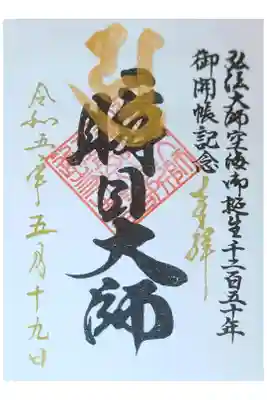 弘法大師空海御誕生千二百五十年
御開帳記念
奉拝
大師
令和五年五月十九日